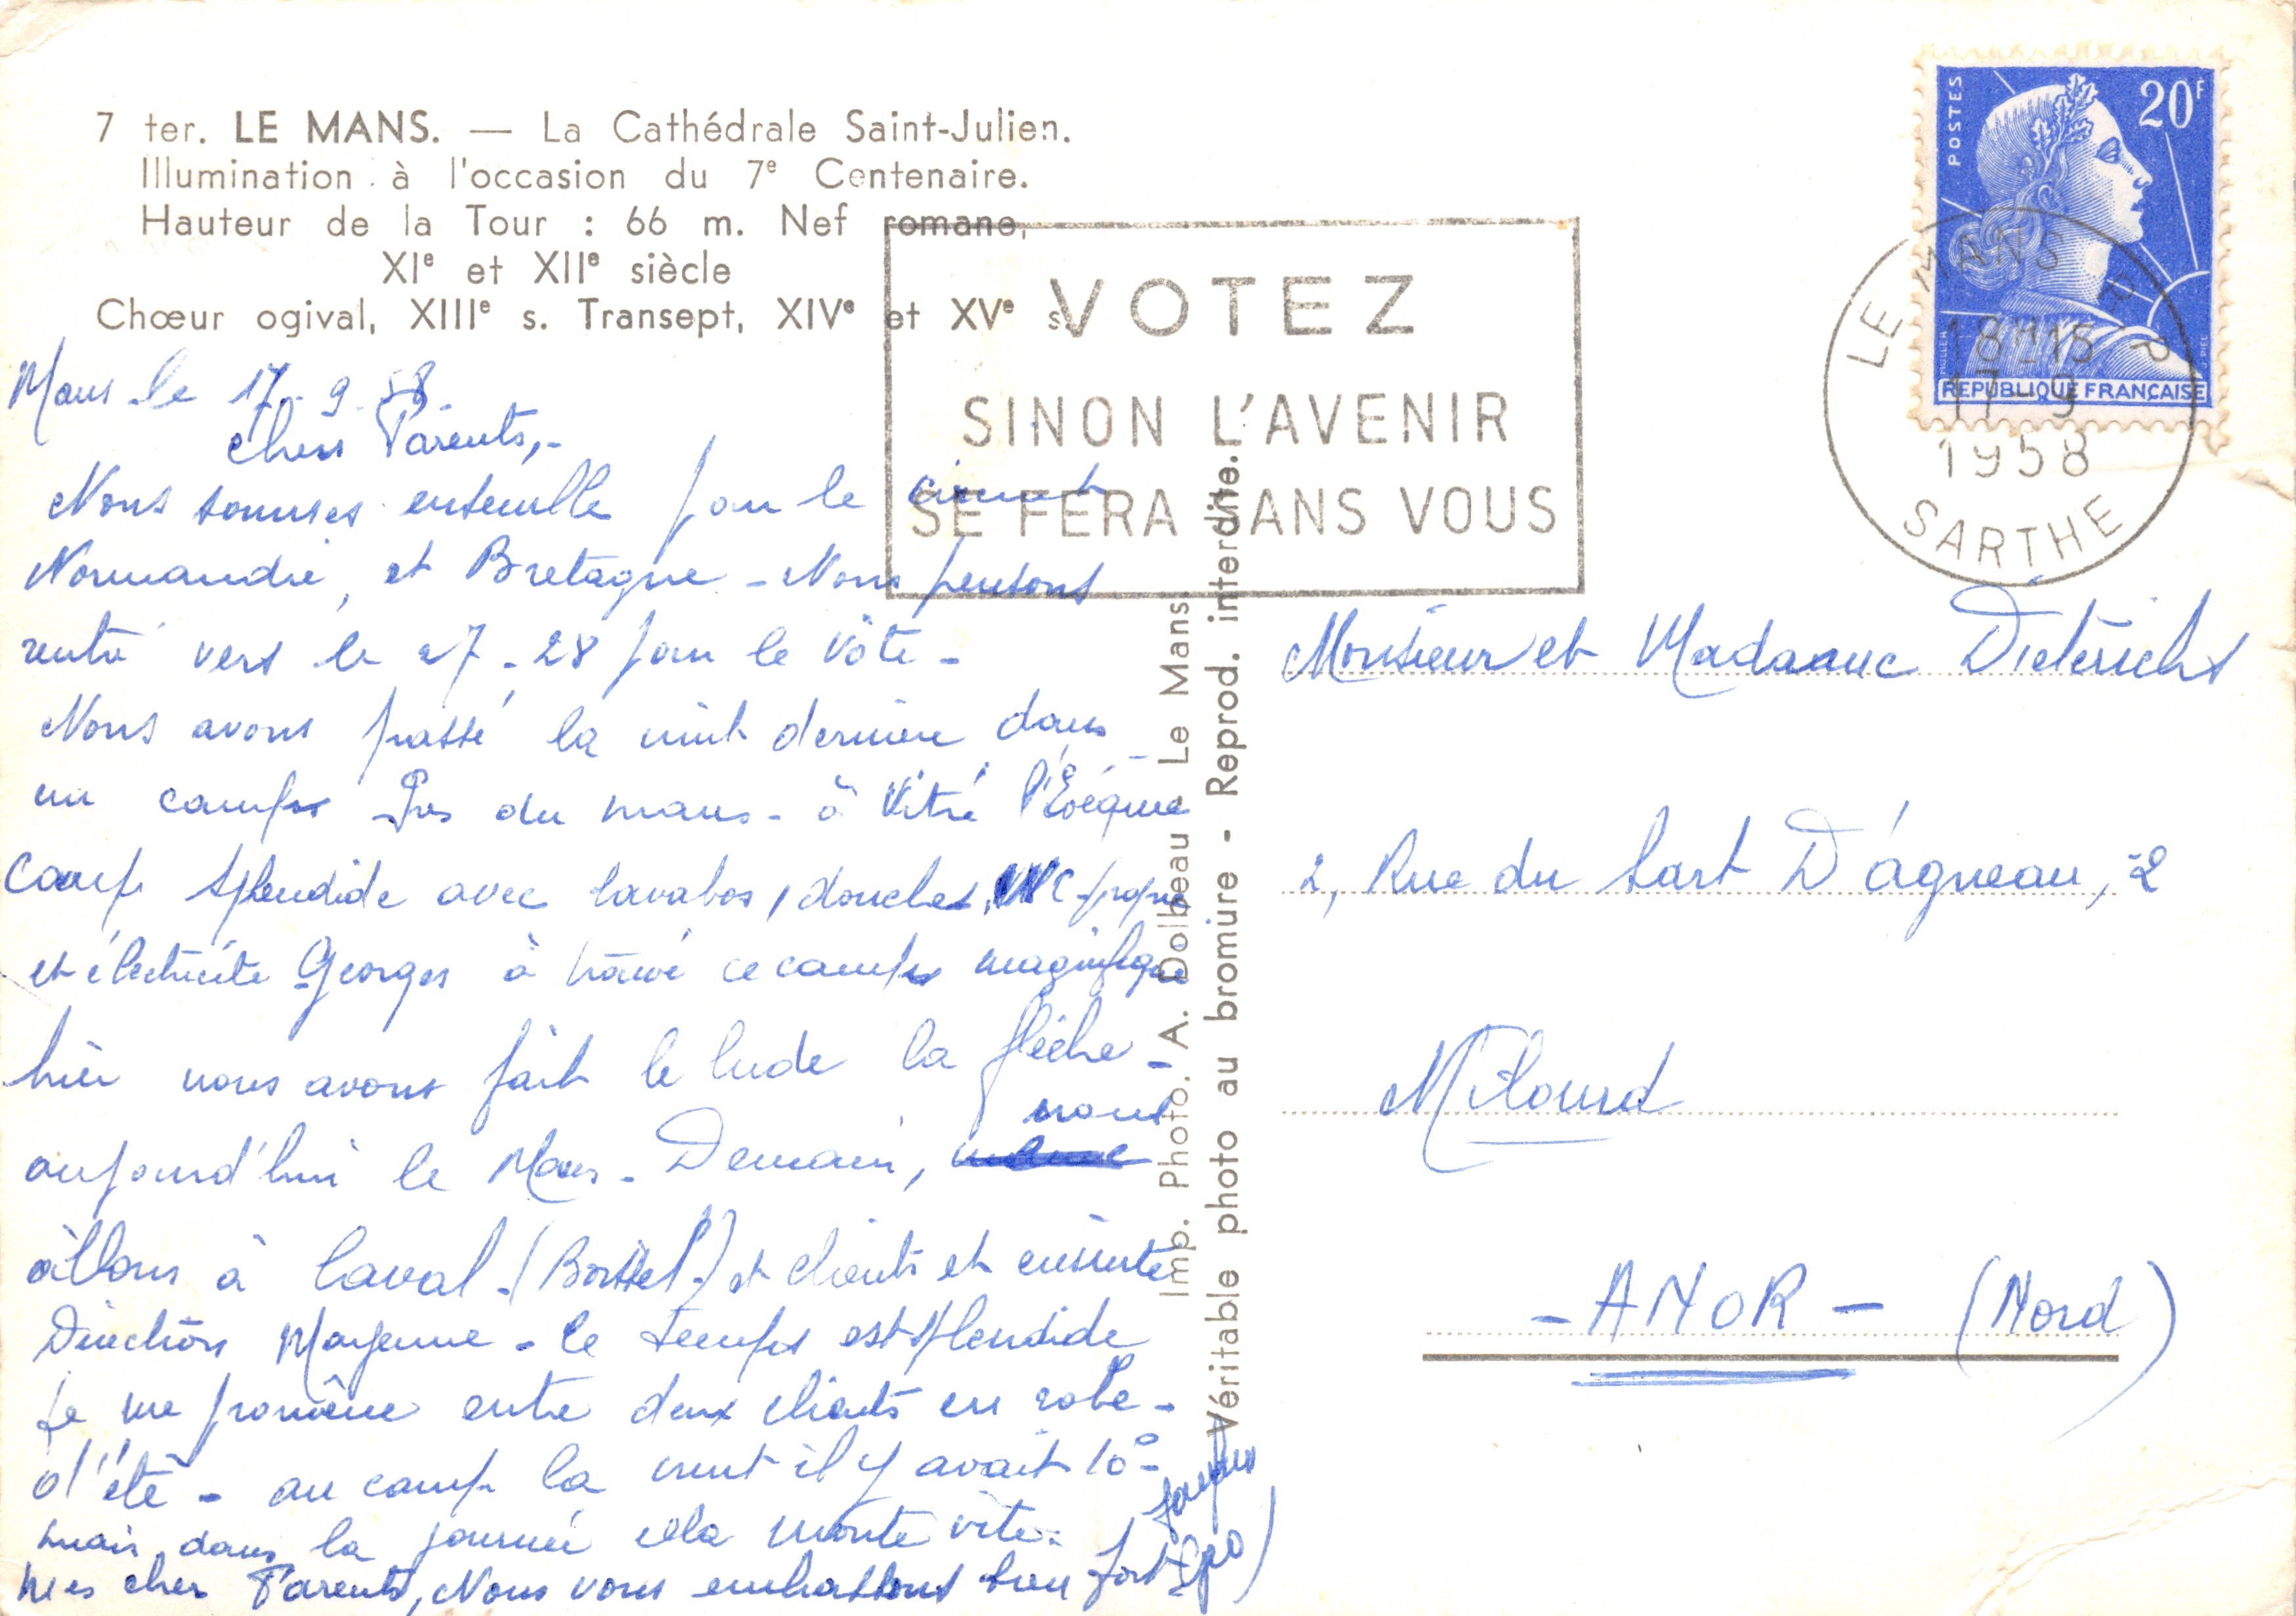 7 ter. LE MANS. — La Cathédrale Saint-Julien.
Illumination à l'occasion du 7e Centenaire.
Hauteur de la Tour : 66 m. Nef romane,
XIe et XIIe siècle
Chœur ogival, XIIIe s. Transept, XIVe et XVe s.
Mans le 17.9.58.
chers Parents,-
Nous sommes ensemble pour le circuit
Normandie, et Bretagne - Nous pensons
rentré vers le 27-28 pour le vôte -
Nous avons passé la nuit dernière dans
un camps Près du mans - à Vitré l'Evêque
Camp splendide avec lavabos, douches, WC propre
et électricité Georges à trouvé ce camps magnifique
hier nous avons fait le lude la flèche -
nous
aujourd'hui le Mans - Demain,
allons à Laval - et clients et ensuite
Direction Mayenne - le temps est splendide
Je me promène entre deux clients en robe -
d'été - au camp la nuit il y avait 10° -
mais dans la journée cela monte vite.
Mes cher Parents, Nous vous embrassons bien fort
VOTEZ
SINON L'AVENIR
SE FERA SANS VOUS
POSTES
20F
REPUBLIQUE FRANÇAISE
MULLER
PIEL
LE MANS R.P.
18H15
17-9
1958
SARTHE
Imp. Photo. A. Dolbeau - Le Mans.
Véritable photo au bromure - Reprod. interdite.
Monsieur et Madame Dieterichs
2, Rue du Sart D'agneau, 2
Milourd
- ANOR - (Nord)